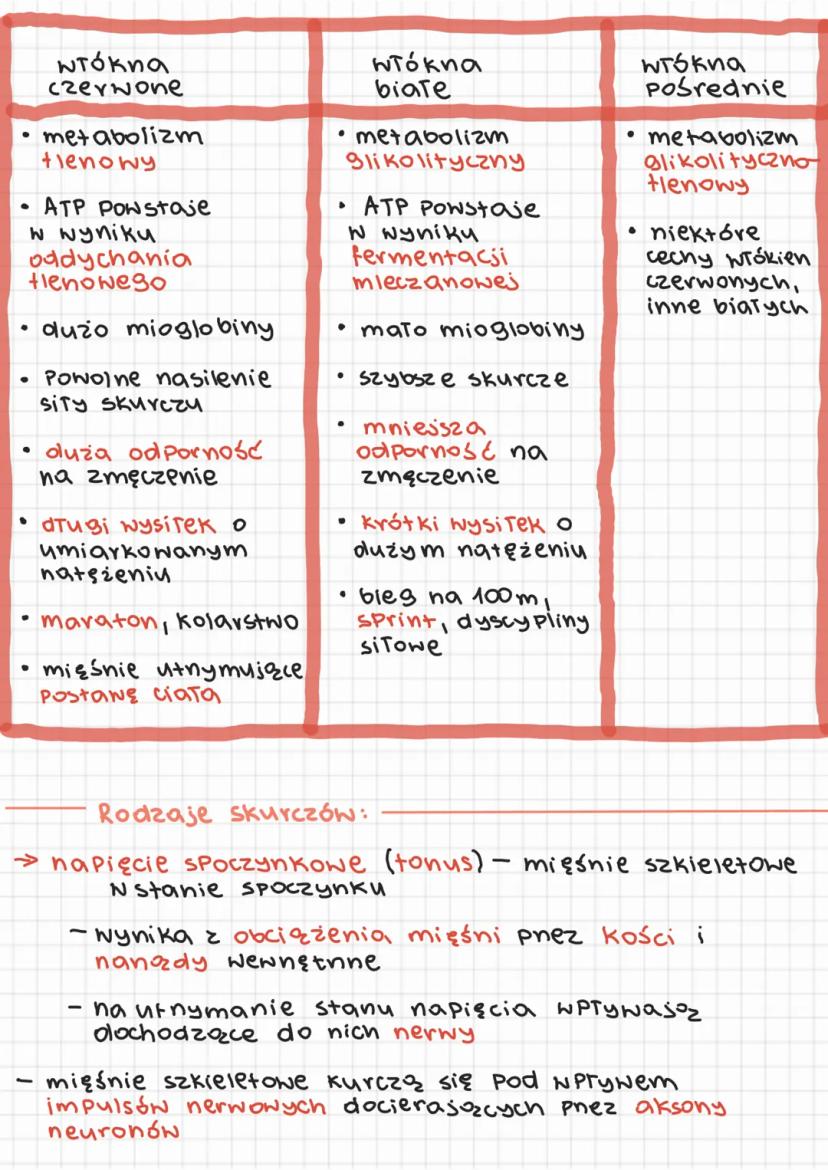 włókna
czerwone
• metabolizm
tlenowy
• ATP powstaje
w wyniku
oddychania
tlenowego
• dużo mioglobiny
• powolne nasilenie
siły skurczu
• duża odporność
na zmęczenie
• długi wysiłek o
umiarkowanym
natężeniu
• maraton, kolarstwo
• mięśnie utrzymujące
postawę ciała
włókna
białe
• metabolizm
glikolityczny
• ATP powstaje
w wyniku
fermentacji
mleczanowej
• mało mioglobiny
• szybsze skurcze
• mniejsza
odporność na
zmęczenie
• krótki wysiłek o
dużym natężeniu
• bieg na 100m,
sprint, dyscypliny
siłowe
włókna
pośrednie
• metabolizm
glikolityczno-
tlenowy
• niektóre
cechy włókien
czerwonych,
inne białych
Rodzaje skurczów:
→ napięcie spoczynkowe (tonus) – mięśnie szkieletowe
w stanie spoczynku
– wynika z obciążenia mięśni przez kości i
narządy wewnętrzne
– na utrzymanie stanu napięcia wpływają
dochodzące do nich nerwy
– mięśnie szkieletowe kurczą się pod wpływem
impulsów nerwowych docierających przez aksony
neuronów